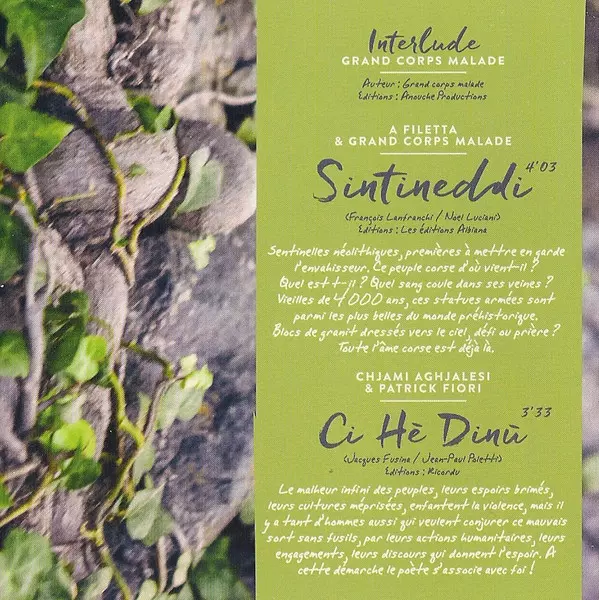 Interlude
GRAND CORPS MALADE
Auteur : Grand corps malade
Editions : Anouche Productions
A FILETTA
& GRAND CORPS MALADE
Sintineddi 4'03
(François Lanfranchi / Noël Luciani)
Editions : Les éditions Albiana
Sentinelles néolithiques, premières à mettre en garde
l'envahisseur. Ce peuple corse d'où vient-il ?
Quel est t-il ? Quel sang coule dans ses veines ?
Vieilles de 4 000 ans, ces statues armées sont
parmi les plus belles du monde préhistorique.
Blocs de granit dressés vers le ciel, défi ou prière ?
Toute l'âme corse est déjà là.
CHJAMI AGHJALESI
& PATRICK FIORI
Ci Hè Dinù 3'33
(Jacques Fusina / Jean-Paul Poletti)
Editions : Ricordu
Le malheur infini des peuples, leurs espoirs brimés,
leurs cultures méprisées, enfantent la violence, mais il
y a tant d'hommes aussi qui veulent conjurer ce mauvais
sort sans fusils, par leurs actions humanitaires, leurs
engagements, leurs discours qui donnent l'espoir. A
cette démarche le poète s'associe avec foi !